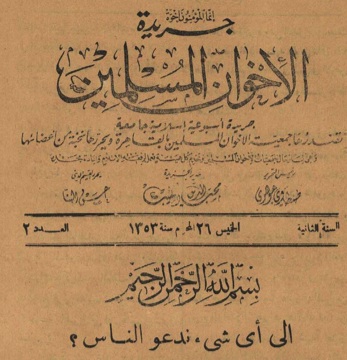 إنما المؤمنون إخوة
جريدة
الإخوان المسلمين
جريدة أسبوعية إسلامية جامعة
تصدرها جمعية الإخوان المسلمين بالقاهرة ويحررها نخبة من أعضائها
محب الدين الخطيب
السنة الثانية
الخميس ٢٦ محرم سنة ١٣٥٣
العدد ٢
بسم الله الرحمن الرحيم
الى أى شىء ندعو الناس ؟